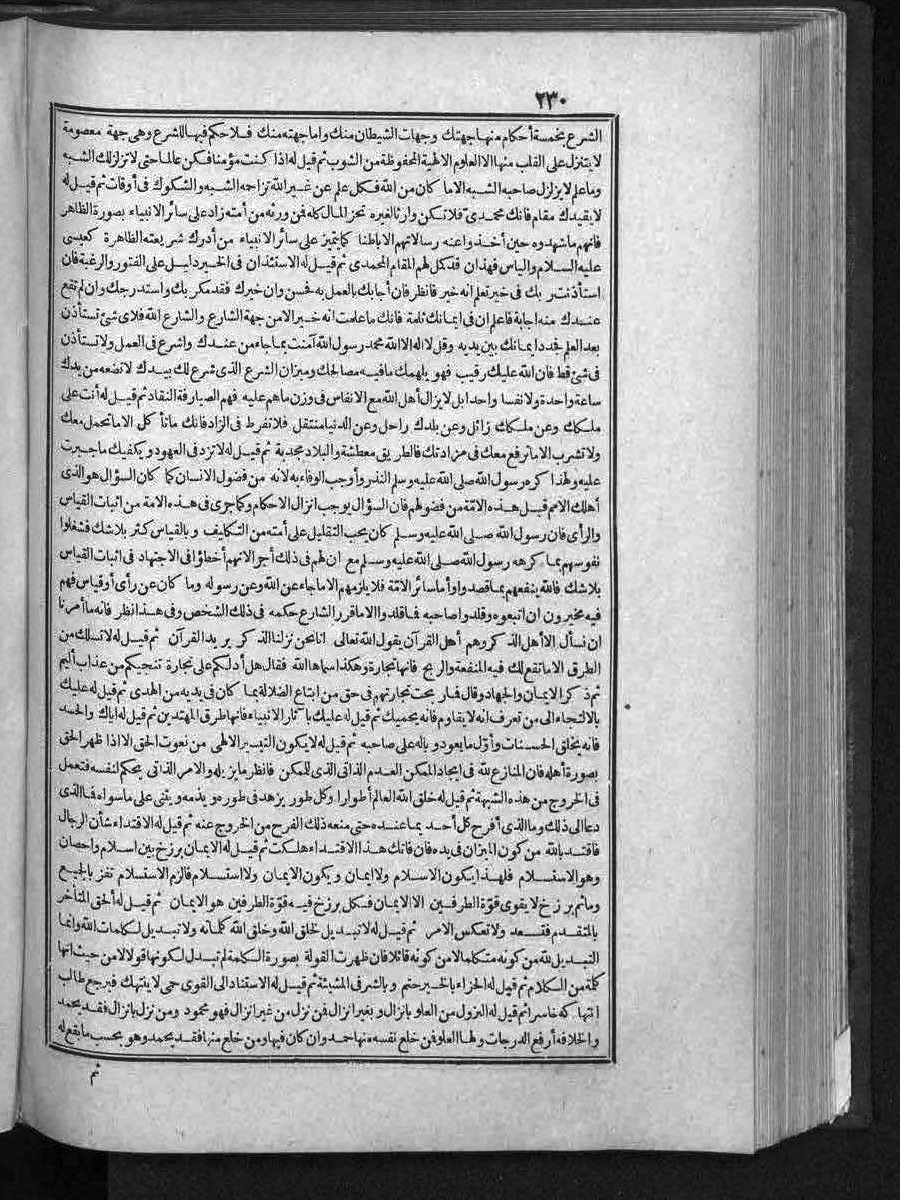 ٢٣٠
الشرع بخمسة أحكام منها جهتك وجهات الشيطان منك واما جهته منك فلا حكم فيها للشرع وهى جهة معصومة
لا يتنزل على القلب منها الا العلوم الالهية المحفوظة من الشوب ثم قيل له اذا كنت مؤمنا فكن عالما حتى لا تزلزلك الشبه
وما علم لا يزلزل صاحبه الشبه الا ما كان من الله فكل علم عن غير الله تزاحمه الشبه والشكوك فى أوقات ثم قيل له
لا يقيدك مقام فانك محمدى فلا تكن وارثا لغيره تحز المال كله فمن ورثه من أمته زاد على سائر الانبياء بصورة الظاهر
فانهم ما شهدوه حين أخذوا عنه رسالاتهم الا باطنا كما يتميز على سائر الانبياء من أدرك شريعته الظاهرة كعيسى
عليه السلام والياس فهذان قد كمل لهم المقام المحمدى ثم قيل له الاستئذان فى الخير دليل على الفتور والرغبة فان
استأذنت ربك فى خير تعلم انه خير فانظر فان أجابك بالعمل به فحسن وان خيرك فقد مكر بك واستدرجك وان لم تقع
عندك منه اجابة فاعلم ان فى ايمانك ثلمة فانك ما علمت انه خير الا من جهة الشارع والشارع الله فلاى شئ تستأذن
بعد العلم فجدد ايمانك بين يديه وقل لا اله الا الله محمد رسول الله آمنت بما جاء من عندك واشرع فى العمل ولا تستأذن
فى شئ قط فان الله عليك رقيب فهو يلهمك ما فيه مصالحك وميزان الشرع الذى شرع لك بيدك لا تضعه من يدك
ساعة واحدة ولا نفسا واحدا بل لا يزال أهل الله مع الانفاس فى وزن ما هم عليه فهم الصيارفة النقاد ثم قيل له أنت على
ملكك وعن ملكك زائل وعن بلدك راحل وعن الدنيا منتقل فلا تفرط فى الزاد فانك ما تأكل الا ما تحمل معك
ولا تشرب الا ما ترفع معك فى مزادتك فالطريق معطشة والبلاد مجدبة ثم قيل له لا تزد فى العهود ويكفيك ما جبرت
عليه ولهذا كره رسول الله صلى الله عليه وسلم النذر وأوجب الوفاء به لانه من فضول الانسان كما كان السؤال هو الذى
أهلك الامم قبل هذه الامة من فضولهم فان السؤال يوجب انزال الاحكام وكما جرى فى هذه الامة من اثبات القياس
والرأى فان رسول الله صلى الله عليه وسلم كان يحب التقليل على أمته من التكليف وبالقياس كثر بلا شك فشغلوا
نفوسهم بما كرهه رسول الله صلى الله عليه وسلم مع ان لهم فى ذلك أجرا لانهم أخطؤا فى الاجتهاد فى اثبات القياس
بلا شك فالله ينفعهم بما قصدوا وأما سائر الامة فلا يلزمهم الا ما جاء عن الله وعن رسوله وما كان عن رأى أو قياس فهم
فيه مخيرون ان اتبعوه وقلدوا صاحبه فما قلدوا الا ما قرر الشارع حكمه فى ذلك الشخص وفى هذا نظر فانه ما أمرنا
ان نسأل الا أهل الذكر وهم أهل القرآن يقول الله تعالى انا نحن نزلنا الذكر يريد القرآن ثم قيل له لا تسلك من
الطرق الا ما تقع لك فيه المنفعة والربح فانها تجارة وهكذا سماها الله فقال هل أدلكم على تجارة تنجيكم من عذاب أليم
ثم ذكر الايمان والجهاد وقال فما ربحت تجارتهم فى حق من ابتاع الضلالة بما كان فى يديه من الهدى ثم قيل له عليك
بالالتجاء الى من تعرف انه لا يقاوم فانه يحميك ثم قيل له عليك با ثار الانبياء فانها طرق المهتدين ثم قيل له اياك والحسد
فانه يخلق الحسنات وأول ما يعود وباله على صاحبه ثم قيل له لا يكون التيسير الالهى من نعوت الحق الا اذا ظهر الحق
بصورة أهله فان المنازع لله فى ايجاد الممكن العدم الذاتى الذى للممكن فانظر ما يزيله والامر الذاتى يحكم لنفسه فتعمل
فى الخروج من هذه الشبهة ثم قيل له خلق الله العالم أطوارا وكل طور يزهد فى طوره ويذمه ويثنى على ما سواه فما الذى
دعا الى ذلك وما الذى أفرح كل أحد بما عنده حتى منعه ذلك الفرح من الخروج عنه ثم قيل له الاقتداء شأن الرجال
فاقتد بالله من كون الميزان فى يده فان فاتك هذا الاقتداء هلكت ثم قيل له الايمان برزخ بين اسلام واحسان
وهو الاستسلام فلهذا يكون الاسلام ولا ايمان ويكون الايمان ولا استسلام فالزم الاستسلام تفز بالجميع
وما ثم برزخ لا يقوى قوة الطرفين الا الايمان فكل برزخ فيه قوة الطرفين هو الايمان ثم قيل له ألحق المتأخر
بالمتقدم فتسعد ولا تعكس الامر ثم قيل له لا تبديل لخلق الله وخلق الله كلماته ولا تبديل لكلمات الله وانما
التبديل لله من كونه متكلما لا من كونه قائلا فان ظهرت القولة بصورة الكلمة لم تبدل لكونها قولا لا من حيث انها
كلمة من الكلام ثم قيل له الجزاء بالخير حتم وبالشر فى المشيئة ثم قيل له الاستناد الى القوى حمى لا ينتهك فيرجع طالب
انتهاكه خاسرا ثم قيل له النزول من العلو بانزال وبغير انزال فمن نزل من غير انزال فهو محمود ومن نزل بانزال فقد يحمد
والخلافة أرفع الدرجات ولها العلو فمن خلع نفسه منها حمد وان كان فيها ومن خلع منها فقد يحمد وهو بحسب ما يقع له
ثم